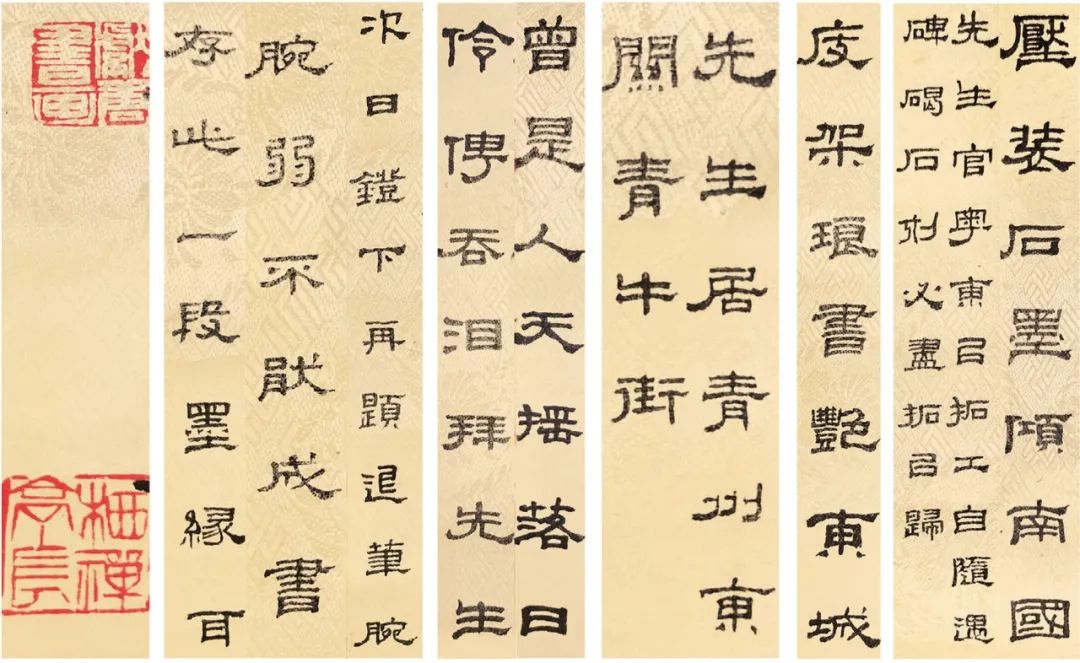 壓裝石墨傾南國
先生官粤東㠯拓工自隨遇
碑碣石刻必盡拓㠯歸
庋架琅書艷東城
先生居青州東
關青牛街
曾是人天摇落日
伶俜吞泪拜先生
次日鐙下再題退筆腕
腕弱不能成書
存此一段墨緣耳
獻唐書畫
栖禪亭長